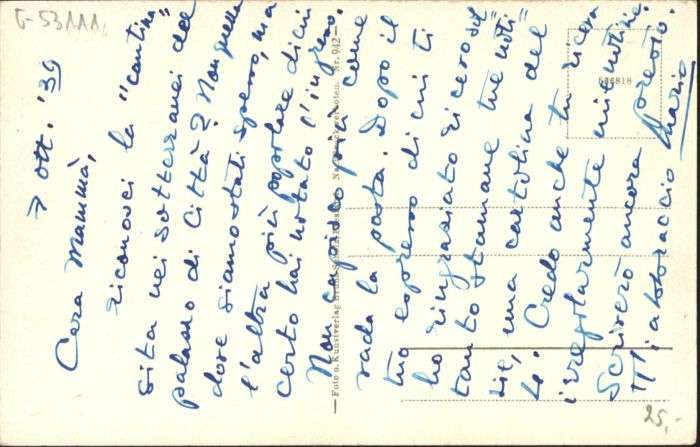 G-53111.
7 ott. '39
Cara Mammà,
riconosci la "cantina"
sita nei sotterranei del
palazzo di Città? Non quella
dove siamo stati spesso, ma
l'altra più popolare di cui
certo hai notato l'ingresso.
Non capisco più come
vada la posta. Dopo il
tuo espresso di cui ti
ho ringraziato ricevo sol=
tanto stamane tue noti=
zie, una cartolina del
4. Credo anche tu riceva
irregolarmente mie notizie.
Scriverò ancora presto.
Ti abbraccio Mario
— Foto u. Kunstverlag
Nr. 942 —
25,-